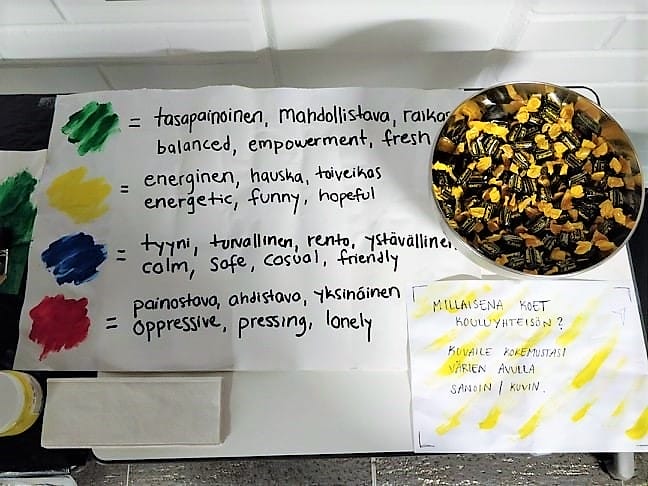 = tasapainoinen, mahdollistava, raikas
balanced, empowerment, fresh
= energinen, hauska, toiveikas
energetic, funny, hopeful
= tyyni, turvallinen, rento, ystävällinen,
calm, safe, casual, friendly
= painostava, ahdistava, yksinäinen
oppressive, pressing, lonely
MILLAISENA KOET
KOULUYHTEISÖN?
KUVAILE KOKEMUSTASI
VÄRIEN AVULLA
SANOIN / KUVIN.